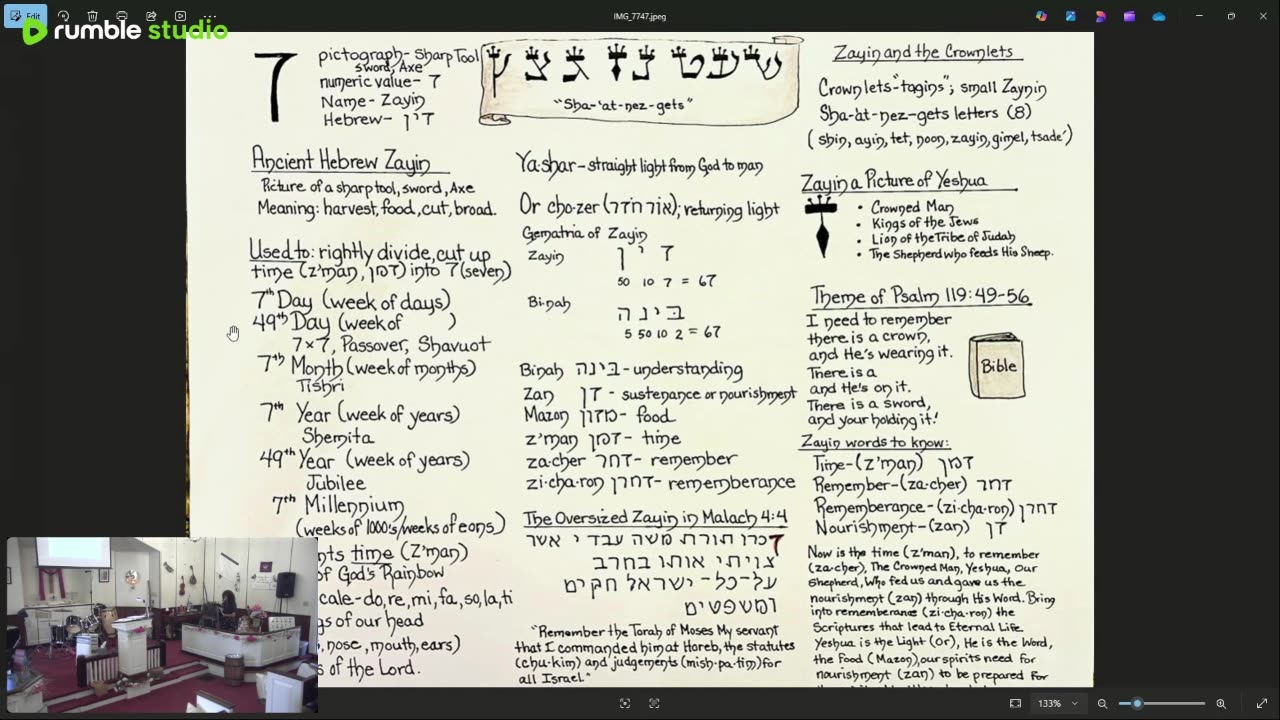 Edit
IMG_7747.jpeg
rumble studio
pictograph- Sharp Tool
sword, Axe
numeric value- 7
Name- Zayin
Hebrew- זין
ז
שעטנזגצץ
"Sha-'at-nez-gets"
Ancient Hebrew Zayin
Picture of a sharp tool, sword, Axe
Meaning: harvest, food, cut, broad.
Used to: rightly divide, cut up
time (z'man, זמן) into 7 (seven)
7th Day (week of days)
49th Day (week of )
7×7, Passover, Shavuot
7th Month (week of months)
Tishri
7th Year (week of years)
Shemita
49th Year (week of years)
Jubilee
7th Millennium
(weeks of 1000's/weeks of eons)
nts time (Z'man)
of God's Rainbow
cale-do, re, mi, fa, so, la, ti
gs of our head
, nose, mouth, ears)
s of the Lord.
Ya·shar-straight light from God to man
Or cho·zer (אור חזר); returning light
Gematria of Zayin
Zayin
ז י ן
50 10 7 = 67
Bi·nah
ב י נ ה
5 50 10 2 = 67
Binah בינה-understanding
Zan זן - sustenance or nourishment
Mazon מזון- food
z'man זמן- time
za·cher זחר- remember
zi·cha·ron זחרן- rememberance
The Oversized Zayin in Malach 4:4
זכרו תורת משה עבדי אשר
צויתי אותו בחרב
על-כל-ישראל חקים
ומשפטים
"Remember the Torah of Moses My servant
that I commanded him at Horeb, the statutes
(chu·kim) and judgements (mish·pa·tim) for
all Israel."
Zayin and the Crownlets
Crownlets-"tagins"; small Zaynin
Sha-'at-nez-gets letters (8)
(shin, ayin, tet, noon, zayin, gimel, tsade')
Zayin a Picture of Yeshua
• Crowned Man
• Kings of the Jews
• Lion of the Tribe of Judah
• The Shepherd who feeds His Sheep.
Theme of Psalm 119:49-56
I need to remember
there is a crown,
and He's wearing it.
There is a
and He's on it.
There is a sword,
and your holding it!
Bible
Zayin words to know:
Time-(z'man) זמן
Remember-(za·cher) זחר
Rememberance-(zi·cha·ron) זחרן
Nourishment-(zan) זן
Now is the time (z'man), to remember
(za·cher), The Crowned Man, Yeshua, Our
Shepherd, Who fed us and gave us the
nourishment (zan) through His Word. Bring
into rememberance (zi·cha·ron) the
Scriptures that lead to Eternal Life
Yeshua is the Light (or), He is the Word,
the Food (Mazon), our spirits need for
nourishment (zan) to be prepared for
133%